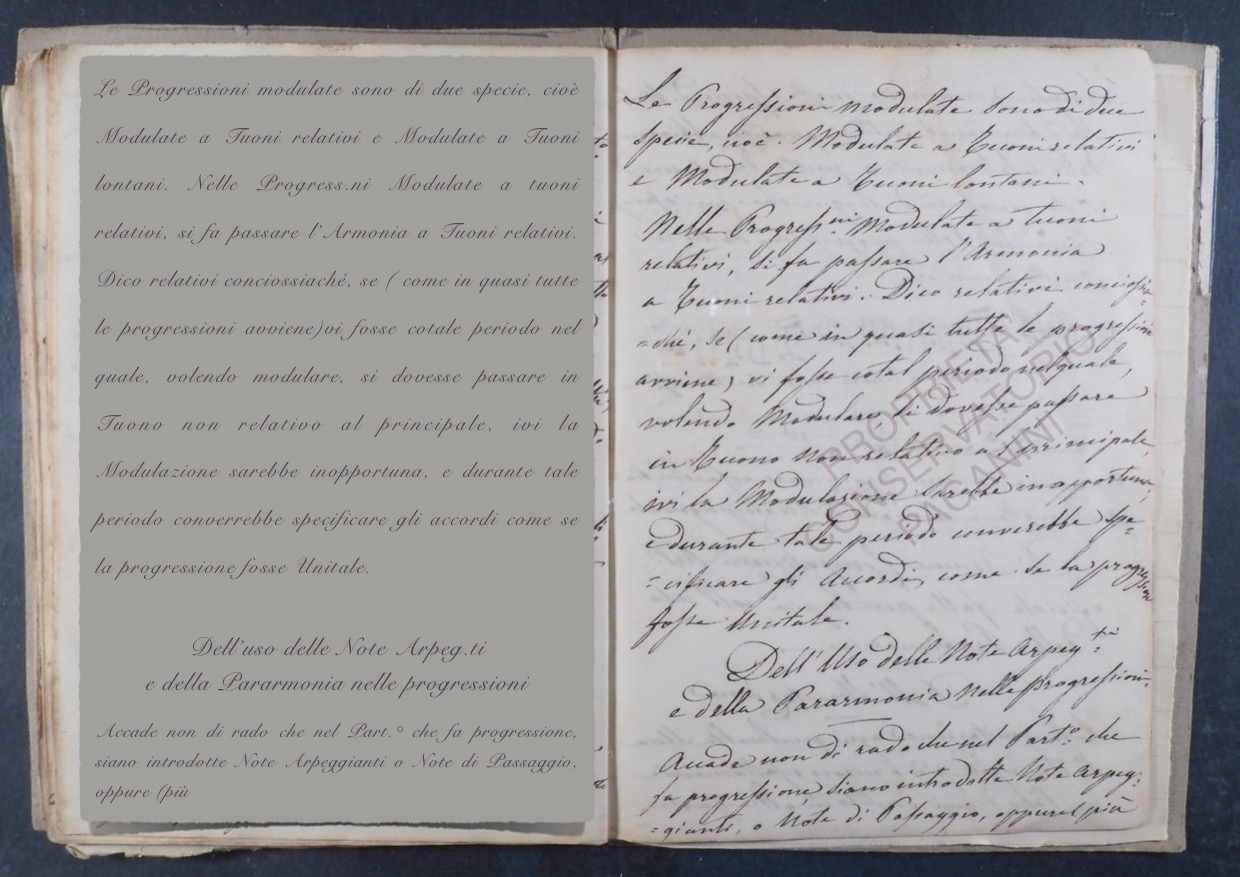 Le Progressioni modulate sono di due specie, cioè
Modulate a Tuoni relativi e Modulate a Tuoni
lontani. Nelle Progress.ni Modulate a tuoni
relativi, si fa passare l'Armonia a Tuoni relativi.
Dico relativi conciossiaché, se ( come in quasi tutte
le progressioni avviene)vi fosse cotale periodo nel
quale, volendo modulare, si dovesse passare in
Tuono non relativo al principale, ivi la
Modulazione sarebbe inopportuna, e durante tale
periodo converrebbe specificare gli accordi come se
la progressione fosse Unitale.
Dell'uso delle Note Arpeg.ti
e della Pararmonia nelle progressioni
Accade non di rado che nel Part.° che fa progressione,
siano introdotte Note Arpeggianti o Note di Passaggio,
oppure (più
Le Progressioni modulate sono di due
specie, cioè. Modulate a Tuoni relativi
e Modulate a Tuoni lontani.
Nelle Progress.ni Modulate a tuoni
relativi, si fa passare l'Armonia
a Tuoni relativi. Dico relativi conciossia-
=chè, se ( come in quasi tutte le progressioni
avviene) vi fosse cotal periodo nel quale,
volendo Modulare si dovesse passare
in Tuono non relativo al principale,
ivi la Modulazione sarebbe inopportuna,
e durante tale periodo converebbe spe=
=cificare gli Accordi, come se la progressione
fosse Unitale.
Dell'Uso delle Note Arpeg.ti
e della Pararmonia nelle progressioni.
Accade non di rado che nel Part.° che
fa progressione, siano introdotte Note Arpeg=
=gianti, o Note di Passaggio, oppure( più
PROPRIETA'
CONSERVATORIO
PAGANINI